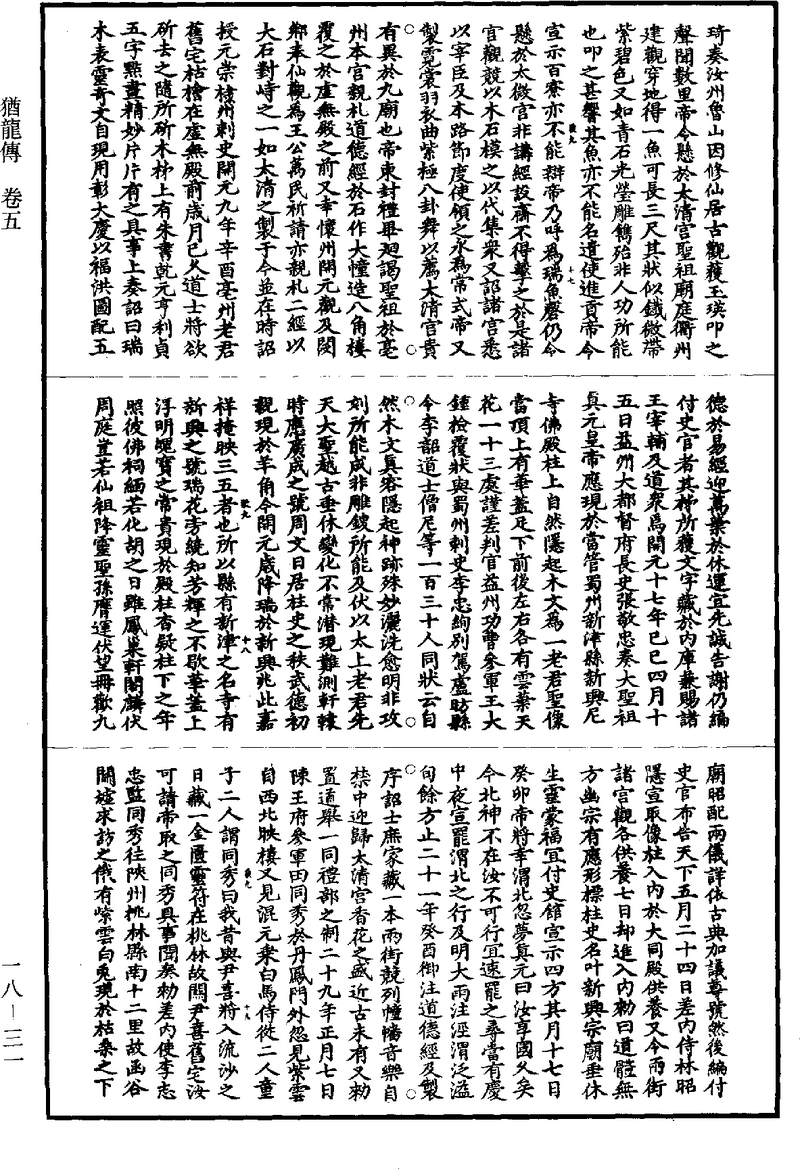 琦奏汝州魯山因修仙居古觀獲玉瑛叩之
聲聞數里帝令懸於太清宮聖祖廟庭衢州
建觀穿地得一魚可長三尺其狀似鐵微帶
紫碧色又如青石光瑩雕鐫殆非人功所能
也叩之甚響其魚亦不能名遣使進貢帝令
宣示百寮亦不能辯帝乃呼爲瑞魚磬仍令
懸於太微宮非講經設齋不得擊之於是諸
官觀競以木石模之以代集衆又詔諸宮悉
以宰臣及本路節度使領之永爲常式帝又
製霓裳羽衣曲紫極八卦舞以薦太清宮貴
有異於九廟也帝東封禮畢廻謁聖祖於亳
州本宮親札道德經於石作大幢造八角樓
覆之於虛無殿之前又幸懷州開元觀及閿
鄉奉仙觀爲王公萬民祈請亦親札二經以
大石對峙之一如太清之製于今並在時詔
授元崇棣州刺史開元九年辛酉亳州老君
舊宅枯檜在虛無殿前歲月已久道士將欲
斫去之隨所斫木柹上有朱書乾元亨利貞
五字點畫精妙片片有之具事上奏詔曰瑞
木表靈奇文自現用彰大慶以福洪圖配五
德於易經迎萬葉於休運宜先誠告謝仍編
付史官者其柹所獲文字藏於內庫兼賜諸
王宰輔及道衆焉開元十七年己巳四月十
五日益州大都督府長史張敬忠奏大聖祖
眞元皇帝應現於當管蜀州新津縣新興尼
寺佛殿柱上自然隱起木文爲一老君聖像
當頂上有華蓋足下前後左右各有雲葉天
花一十三處謹差判官益州功曹參軍王大
鍾檢覆狀與蜀州刺史李忠絢別駕盧昉縣
令李韶道士僧尼等一百三十人同狀云自
然木文眞容隱起神跡殊妙灑洗愈明非攻
刻所能成非雕鏤所能及伏以太上老君先
天大聖越古垂休變化不常潜現難測軒轅
時應廣成之號周文日居柱史之秩武德初
親現於羊角今開元歲降瑞於新興兆此嘉
祥掩映三五者也所以縣有新津之名寺有
新興之號瑞花旁繞知芳輝之不歇華蓋上
浮明瓌寶之常貴現於殿柱杳疑柱下之年
照彼佛祠緬若化胡之日雖鳳巢軒閣麟伏
周庭豈若仙祖降靈聖孫膺運伏望冊歡九
廟昭配兩儀詳依古典加議尊號然後編付
史官布告天下五月二十四日差內侍林昭
隱宣取像柱入內於大同殿供養又令兩街
諸宮觀各供養七日却進入內勅曰道體無
方幽宗有應形標柱史名叶新興宗廟垂休
生靈蒙福宜付史舘宣示四方其月十七日
癸卯帝將幸渭北忽夢眞元曰汝享國久矣
今北神不在汝不可行宜速罷之尋當有慶
中夜宣罷渭北之行及明大雨注涇渭泛溢
旬餘方止二十一年癸酉御注道德經及製
序詔士庶家藏一本兩街競列幢幡音樂自
禁中迎歸太清宮香花之盛近古未有又勅
置道舉一同禮部之制二十九年正月七日
陳王府參軍田同秀於丹鳳門外忽見紫雲
自西北映樓又見混元乘白馬侍從二人童
子二人謂同秀曰我昔與尹喜將入流沙之
日藏一金匱靈符在桃林故關尹喜舊宅汝
可請帝取之同秀具事聞奏勅差內使李志
忠監同秀往陝州桃林縣南十二里故函谷
關墟求訪之俄有紫雲白兔現於枯桑之下
猶龍傳 卷五
一八－三一